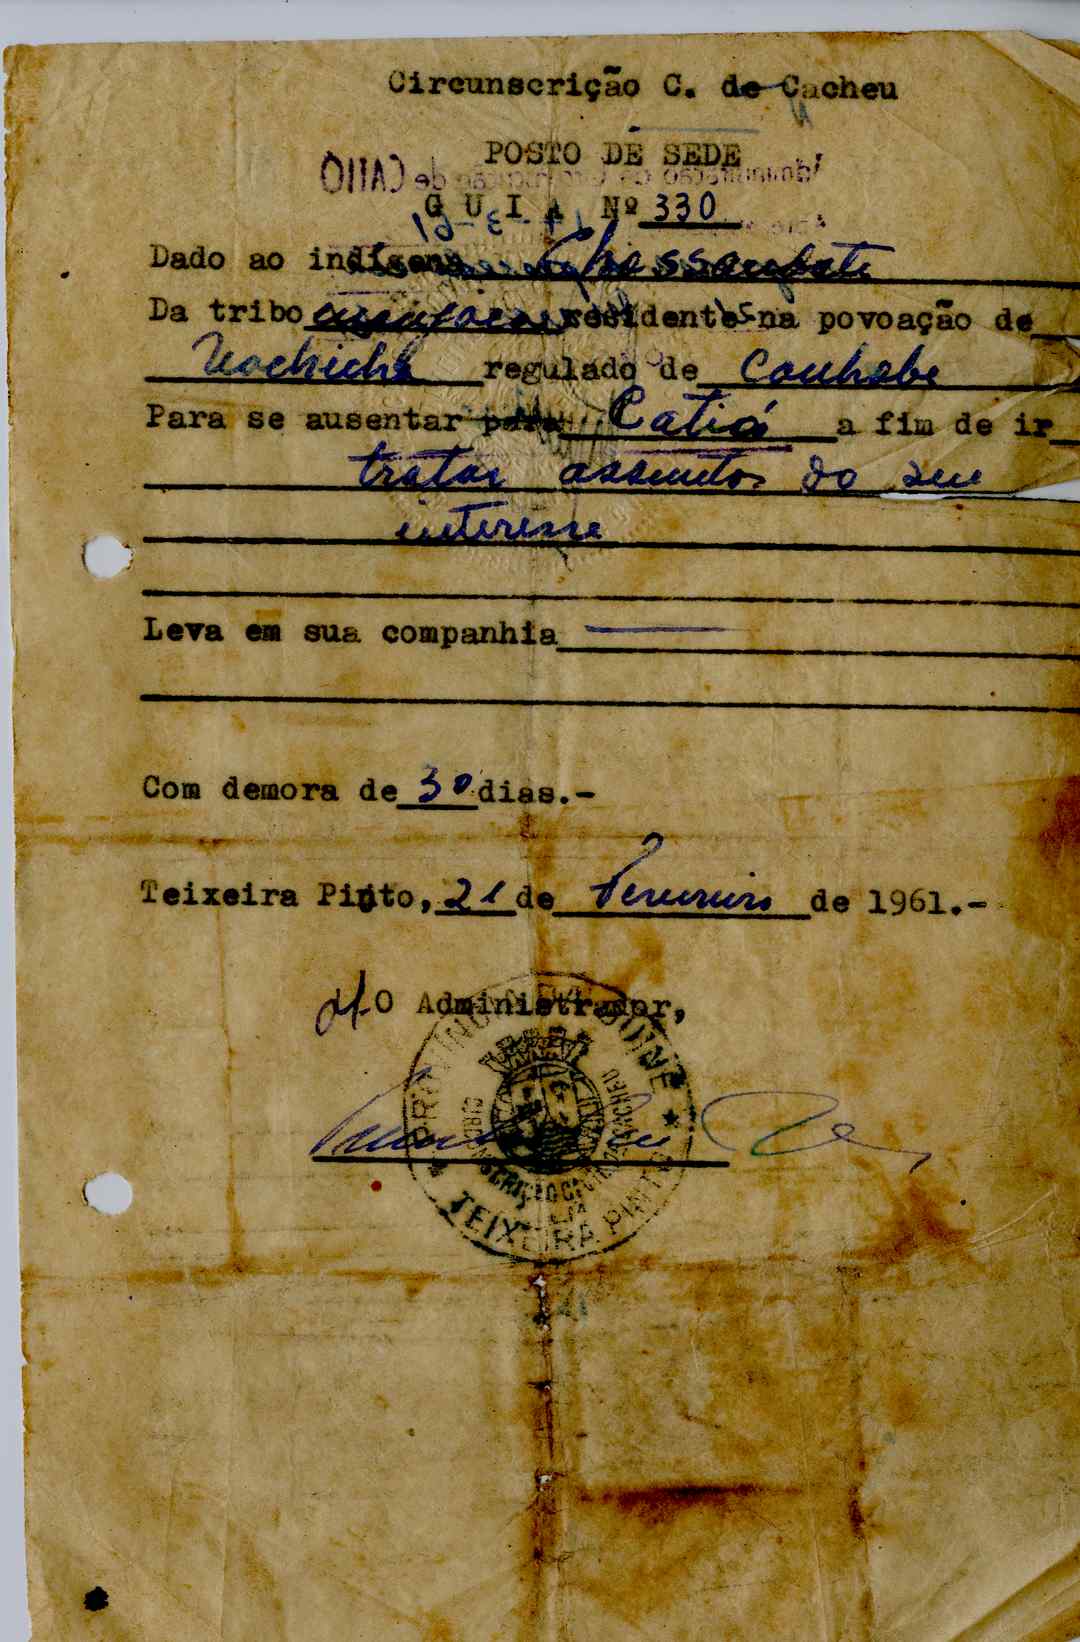 Circunscrição C. de Cacheu
POSTO DE SEDE
G U I A Nº 330
Dado ao indígena
Da tribo residente na povoação de
regulado de
Para se ausentar para Catió a fim de ir
tratar assuntos do seu
interesse
Leva em sua companhia
Com demora de 30 dias.-
Teixeira Pinto, 21 de Fevereiro de 1961.-
O Administrador,
PROVÍNCIA DA GUINÉ
CIRCUNSCRIÇÃO CIVIL DE CACHEU
TEIXEIRA PINTO